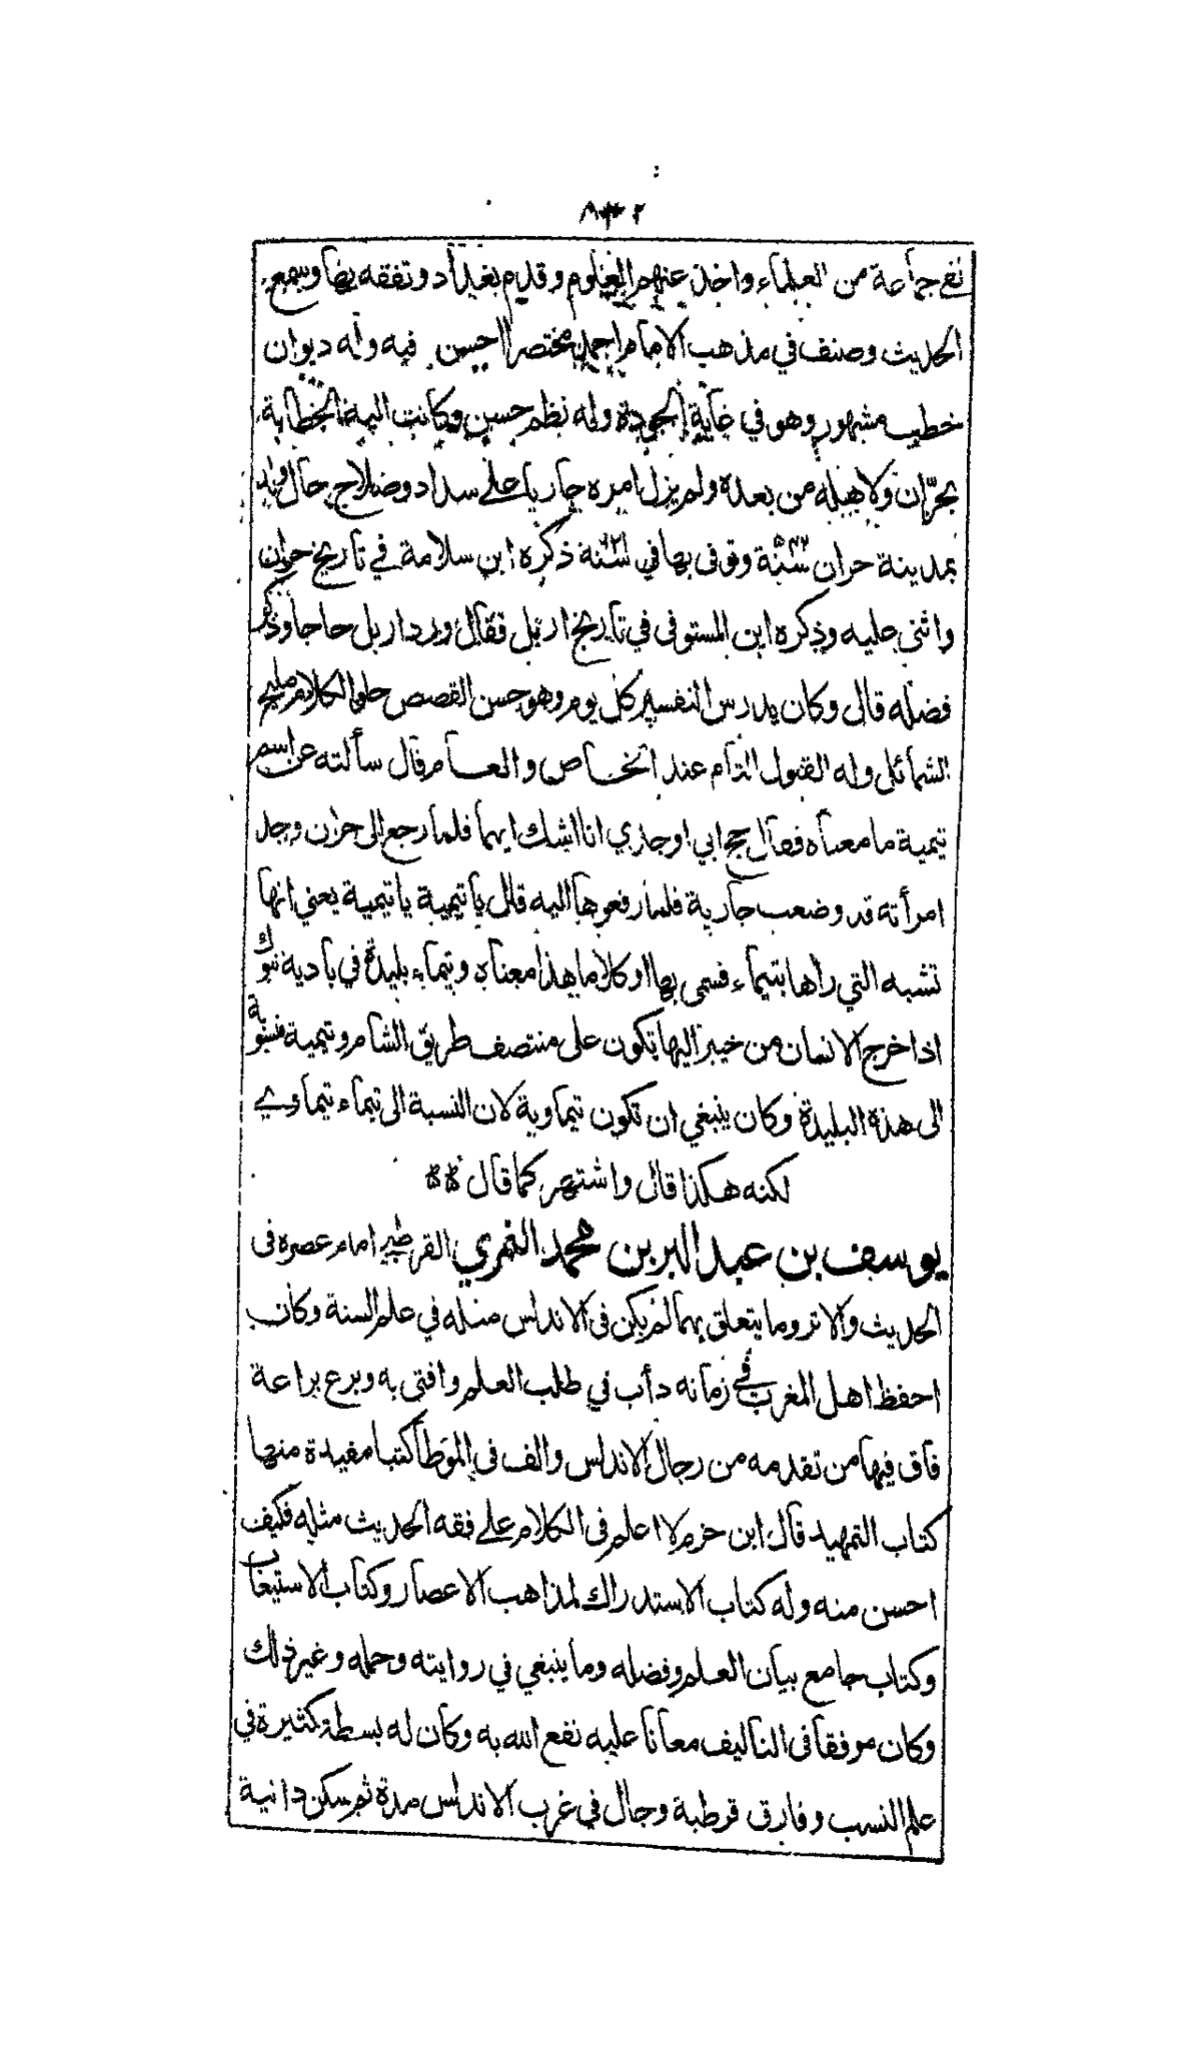 ٨٣٢
نفع جماعة من العلماء واخذ عنهم العلوم وقدم بغداد وتفقه بها وسمع
الحديث وصنف في مذهب الامام احمد مختصرا احسن فيه وله ديوان
خطب مشهور وهو في غاية الجودة وله نظم حسن وكانت اليه الخطابة
بحرّان ولاهله من بعده ولم يزل امره جاريا على سداد وصلاح حال ولد
بمدينة حران سنة وتوفى بها في سنة ذكره ابن سلامة في تاريخ حران
واثنى عليه وذكره ابن المستوفى في تاريخ اربل فقال ورد اربل حاجا وذكر
فضله قال وكان يدرس التفسير كل يوم وهو حسن القصص حلو الكلام مليح
الشمائل وله القبول التام عند الخاص والعام قال سألته عن اسم
تيمية ما معناه فقال حج ابي او جدي انا اشك ايهما فلما رجع الى حران وجد
امرأته قد وضعت جارية فلما رفعوها اليه قال يا تيمية يا تيمية يعني انها
تشبه التي راها بتيماء فسمى بها او كلاما هذا معناه وتيماء بليدة في بادية تبوك
اذا خرج الانسان من خيبر اليها تكون على منتصف طريق الشام وتيمية منسوبة
الى هذه البليدة وكان ينبغي ان تكون تيماوية لان النسبة الى تيماء تيماوي
لكنه هكذا قال واشتهر كما قال **
يوسف بن عبد البر بن محمد النمري القرطبي امام عصره في
الحديث والاثر وما يتعلق بهما لم يكن في الاندلس مثله في علم السنة وكان
احفظ اهل المغرب في زمانه دأب في طلب العلم وافتى به وبرع براعة
فاق فيها من تقدمه من رجال الاندلس والف في الموطأ كتبا مفيدة منها
كتاب التمهيد قال ابن حزم لا اعلم في الكلام على فقه الحديث مثله فكيف
احسن منه وله كتاب الاستدراك لمذاهب الاعصار وكتاب الاستيعاب
وكتاب جامع بيان العلم وفضله وما ينبغي في روايته وحمله وغير ذلك
وكان موفقا في التاليف معانا عليه نفع الله به وكان له بسطة كثيرة في
علم النسب وفارق قرطبة وجال في غرب الاندلس مدة ثم سكن دانية